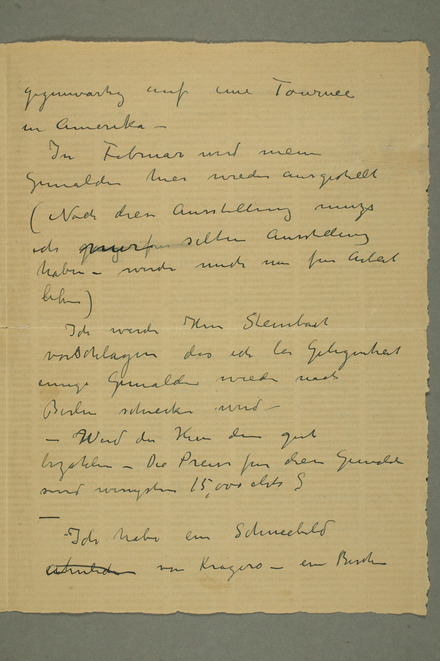 gegenwartig auf eine Tournee
in Amerika –
In Februar wird meine
Gemalden hier wieder ausgestellt
(Nach diese Ausstellung
ich selten Ausstellung
haben – werde mich nur fur Arbeit
leben)
Ich werde Herr Steinbart
vorschlagen das ich bei Gelegenheit
einige Gemalden wieder nach
Berlin schicken wird –
– Wird der Herr dem gut
bezahlen – Die Preise fur diese Gemalde
sind wenigstens 15,000
–
Ich habe ein Schneebild
von Kragerø – ein